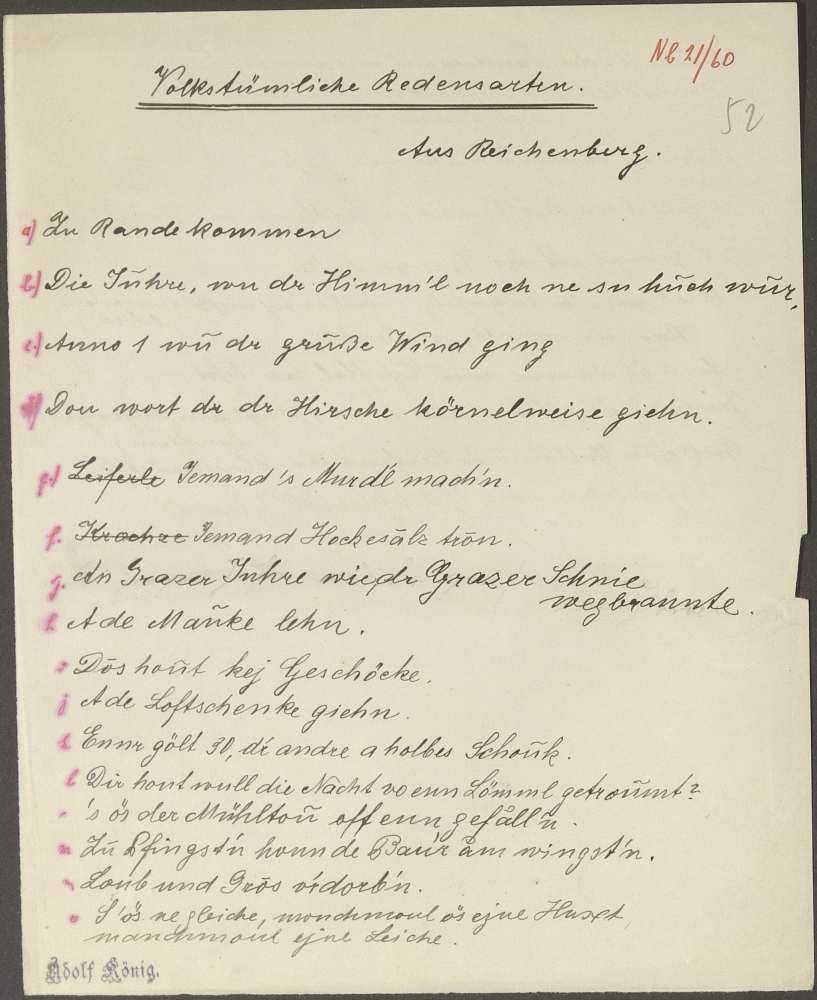 Nb 21/60
Volkstümliche Redensarten.
52
Aus Reichenberg.
a) Zu Rande kommen
b) Die Juhre, wu dr Himm'l noch ne su hūch wūr,
c.) Anno 1 wū dr grūße Wind ging
Dou wort dr dr Hirsche körnelweise giehn.
Leiferle Jemand 's Murd'l mach'n.
f. Krachze Jemand Hockesālz trōn.
g. An Grazer Juhre wie dr Grazer Schnie
wegbrannte.
h A de Mauke lehn.
Dōs hout kej Geschöcke.
j A de Loftschenke giehn.
k Ennr gölt 30, dr andre a holbes Schouk.
l Dir hout wull die Nacht vo enn Lömml getroumt?
's ös der Mühltou off enn gefäll'n.
n Zu Pfingst'n houn de Bau'r am wingst'n.
Loub und Grōs v'rdorb'n.
o S' ös ne gleiche, monchmoul ös ejne Huxt,
manchmoul ejne Leiche.
Adolf König.